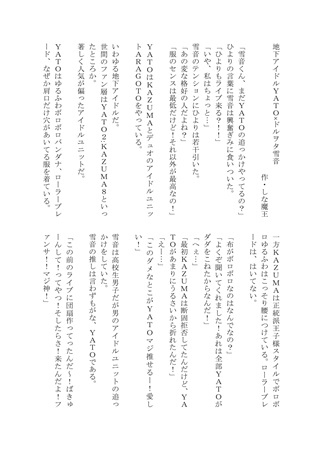 地下アイドルYATO×ドルヲタ雪音
作・しな魔王
「雪音くん、まだYATOの追っかけやってるの？」
ひよりの言葉に雪音は興奮ぎみに食いついた。
「ひよりもライブ来る？！！」
「いや、私はちょっと…」
雪音のテンションにひよりは若干引いた。
「あの変な格好の人だよね？」
「服のセンスは最低だけど！それ以外が最高なの！」
YATOはKAZUMAとデュオのアイドルユニッ
トARAGOTOをやっている。
いわゆる地下アイドルだ。
世間のファン層はYATO2KAZUMA8といっ
たところか。
著しく人気が偏ったアイドルユニットだ。
YATOはゆるふわボロボロバンダナ、ローラーブレ
ード、なぜか肩口だけ穴があいてる服を着ている。
一方KAZUMAは正統派王子様スタイルでボロボ
ロゆるふわはこっそり腰につけている。ローラーブレ
ードは、はいてない。
「布がボロボロなのはなんでなの？」
「よくぞ聞いてくれました！あれは全部YATOが
ダダをこねたからなんだ！」
「へぇ…」
「最初KAZUMAは断固拒否してたんだけど、YA
TOがあまりにうるさいから折れたんだ！」
「えー…」
「このダメなとこがYATOマジ推せるー！愛し
てる！」
雪音は高校生男子だが男のアイドルユニットの追っ
かけをしていた。
雪音の推しは言わずもがな、YATOである。
「この前のライブに団扇作ってったんだ〜！ばきゅ
ーんして！ってやつ！そしたらさ！来たんだよ！フ
ァンサ！！マジ神！」